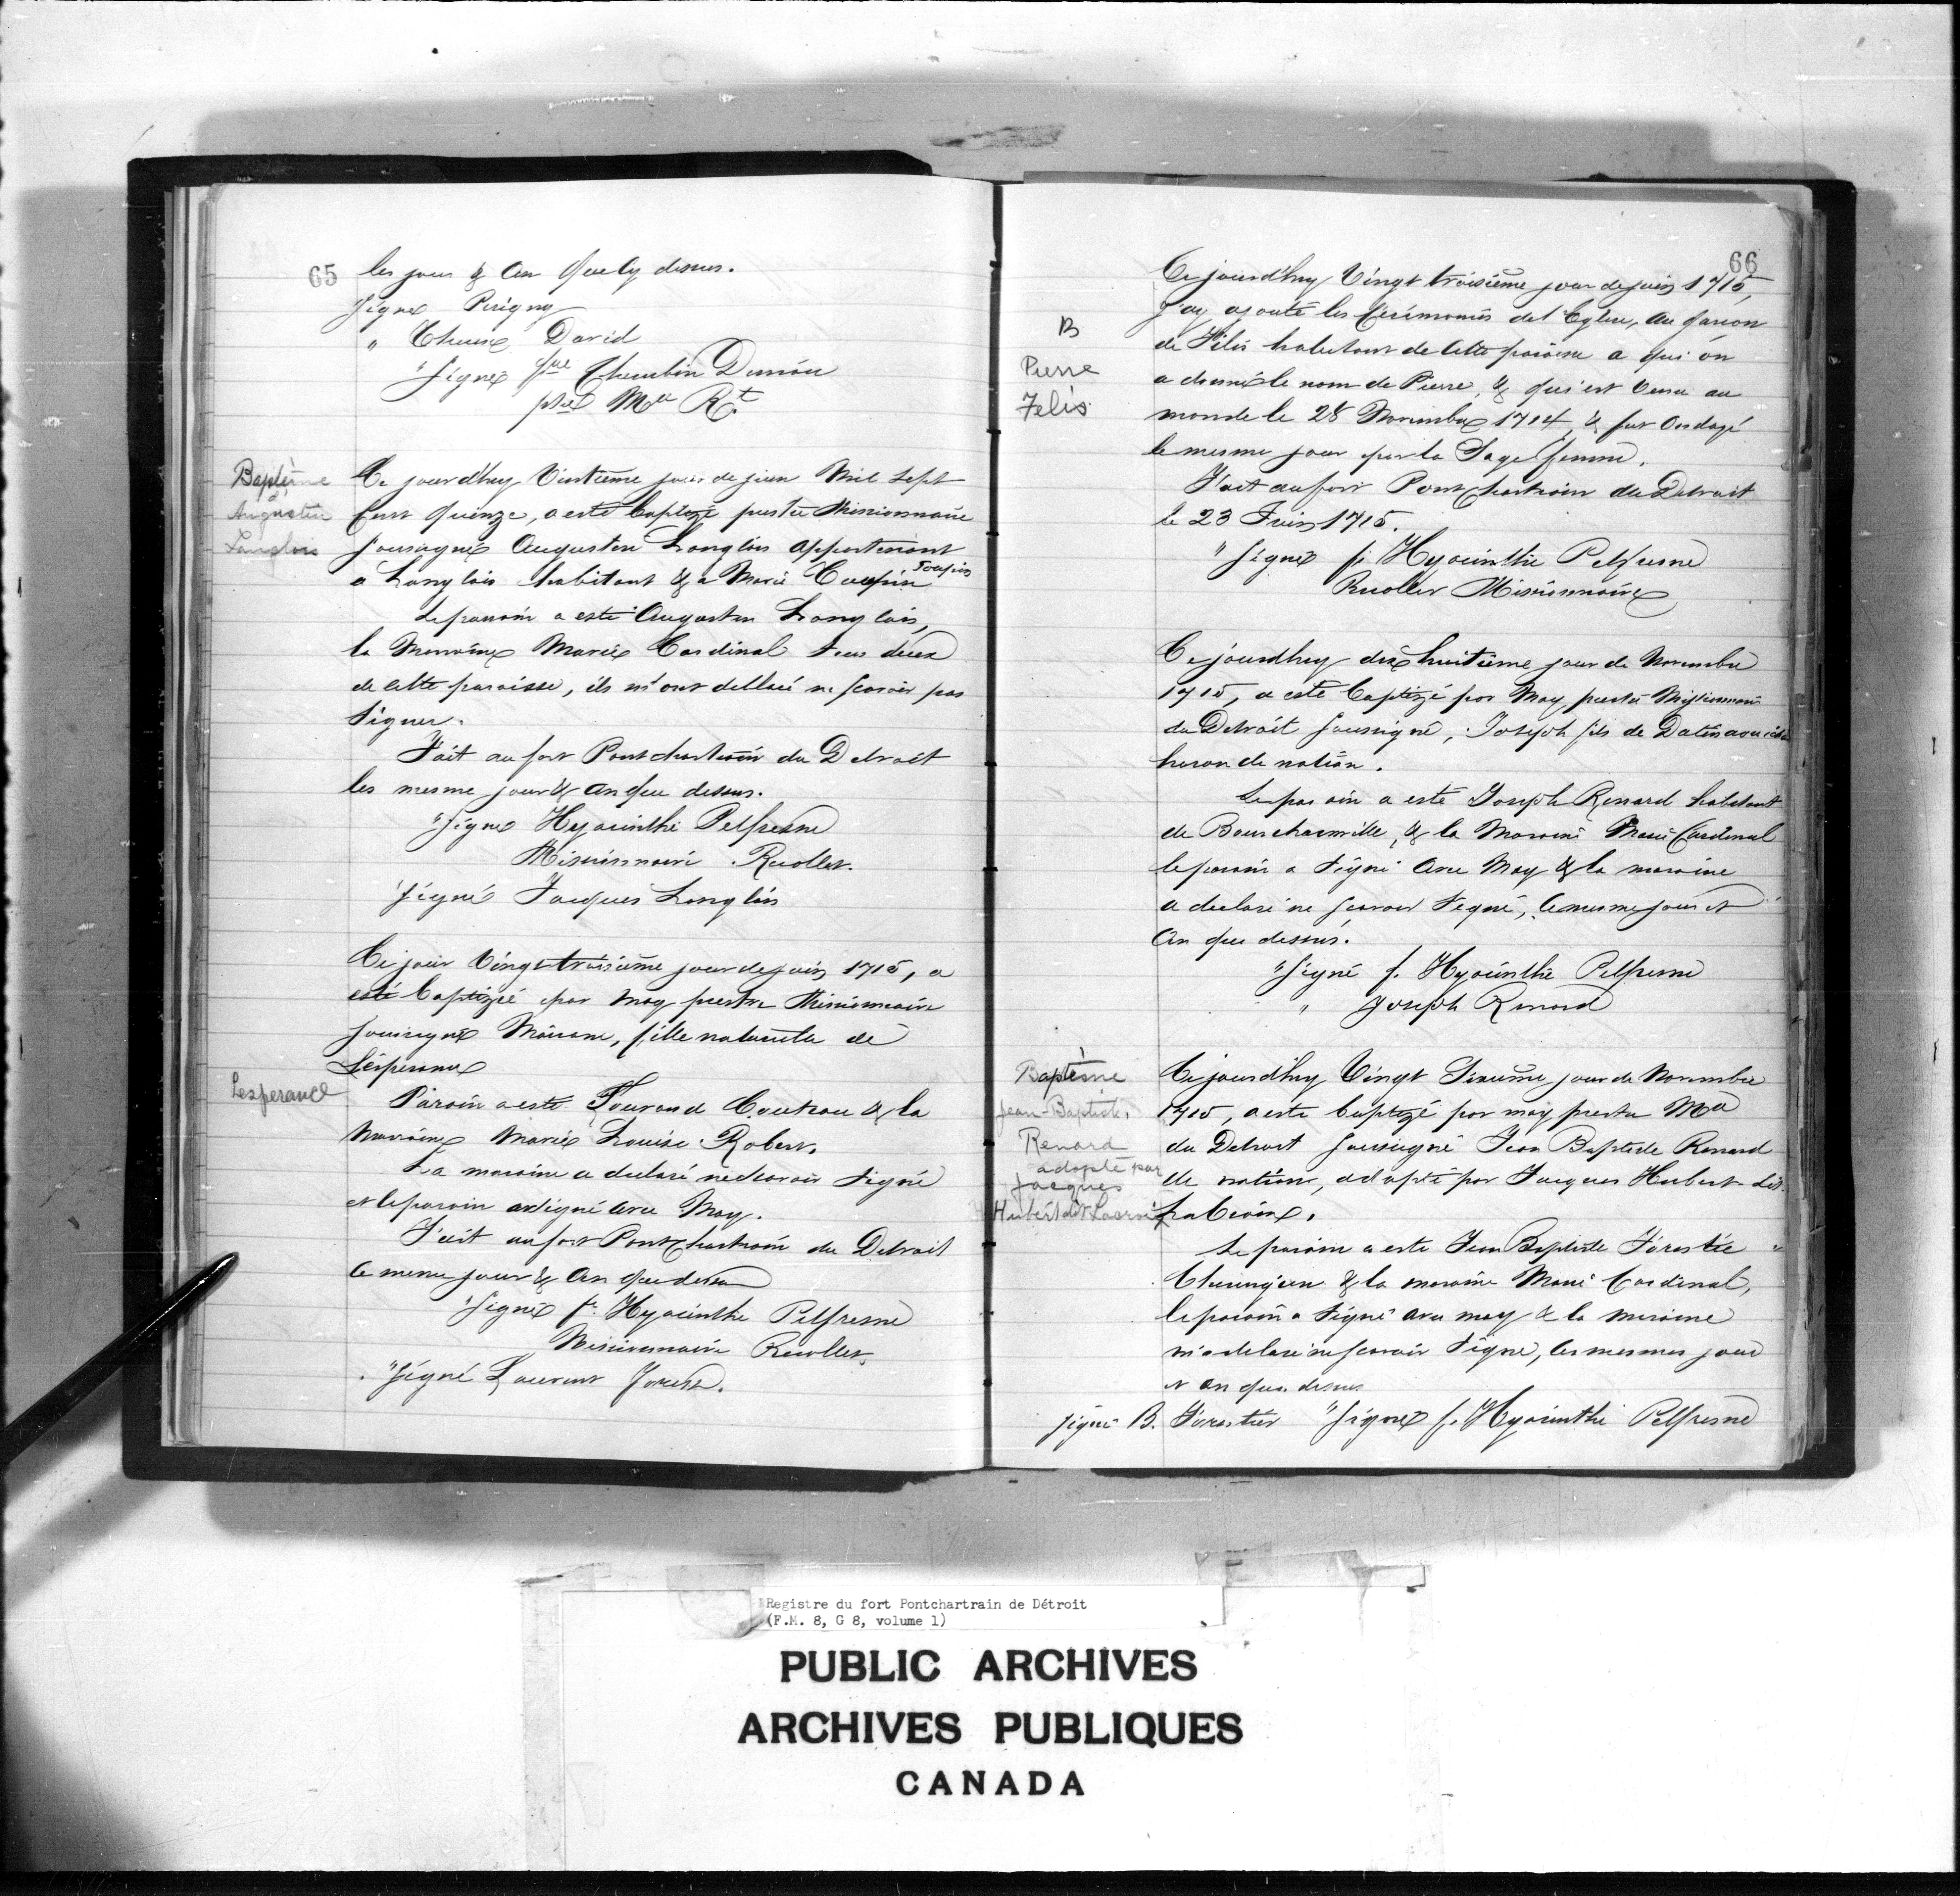 65
les jour & An que Cy dessus.
Signé Perigny
" Therese David
"Signé fre Cherubin Deniau
ptre Mre Rt.
Baptême
d'
Augustin
Langlois
Ce jourd'huy Vintieme jour de juin Mil Sept
Cent Quinze, a esté baptizé prestre Missionnaire
soussigné Augustin Langlois appartenant
a Langlois habitant & a Marie Toupin
Le parrain a esté Augustin Langlois,
la Marraine Marie Cardinal tous deux
de Cette paroisse, ils m'ont declaré ne scavoir pas
Signer.
Fait au fort Pontchartrain du Detroit
les mesme jour & an que dessus.
"Signé Hyacinthe Pelfresne
Missionnaire Recollet.
"Signé Jacques Langlois
Ce jour Vingt troisième jour de juin 1715, a
esté baptizée par moy prestre Missionnaire
soussigné , fille naturelle de
Lesperance
Lesperance
Parain a esté Couteau & la
Marraine Marie Louise Robert.
La maraine a declaré ne scavoir signé
et le parain a signé avec Moy.
Fait au fort Pontchartrain du Detroit
Ce mesme jour & An que dessus
"Signé fr. Hyacinthe Pelfresne
Missionnaire Recollet.
"Signé Laurent
66
Ce jourd'huy Vingt troisième jour de juin 1715,
J'ay ajouté les Cérémonies de l'Eglise, au garcon
de Félis habitant de Cette paroisse a qui on
a donné le nom de Pierre, & qui est Venu au
monde le 28 Novembre 1714, & fut Ondoyé
le mesme jour par la Sage femme.
B
Pierre
Felis
Fait au fort Pont Chartrain du Detroit
le 23 Juin 1715.
"Signé f. Hyacinthe Pelfresne
Recollet Missionnaire
Ce jourdhuy dix huitième jour de Novembre
1715, a esté baptizé par Moy prestre Missionnaire
du Detroit soussigné, Joseph fils de
huron de nation.
Le parain a esté Joseph Renard habitant
de Boucherville, & la Maraine Marie Cardinal
le parain a signé avec Moy & la maraine
a declaré ne scavoir signé, Ce mesme jour et
An que dessus.
"Signé f. Hyacinthe Pelfresne
" Joseph Renard
Baptême
Jean-Baptiste
Renard
adopté par
Jacques
Hubert dit Lacroix
Ce jourd'huy Vingt Sixieme jour de Novembre
1715, a esté baptizé par moy prestre Mre
du Detroit soussigné Jean Baptiste Renard
de nation, adopté par Jacques Hubert dit
LaCroix.
Le parain a esté Jean Baptiste Forestie
Chirurgien & la maraine Marie Cardinal,
le parain a signé avec moy & la maraine
m'a declaré ne scavoir Signé, les mesmes jour
et an que dessus
Signé B. Forestier "Signé f. Hyacinthe Pelfresne
Registre du fort Pontchartrain de Détroit
(F.M. 8, G 8, volume 1)
PUBLIC ARCHIVES
ARCHIVES PUBLIQUES
CANADA